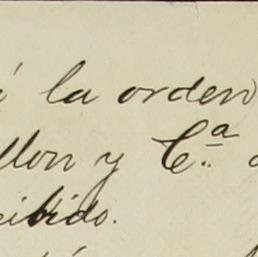 á la orden
llon y C.ª
cibido.